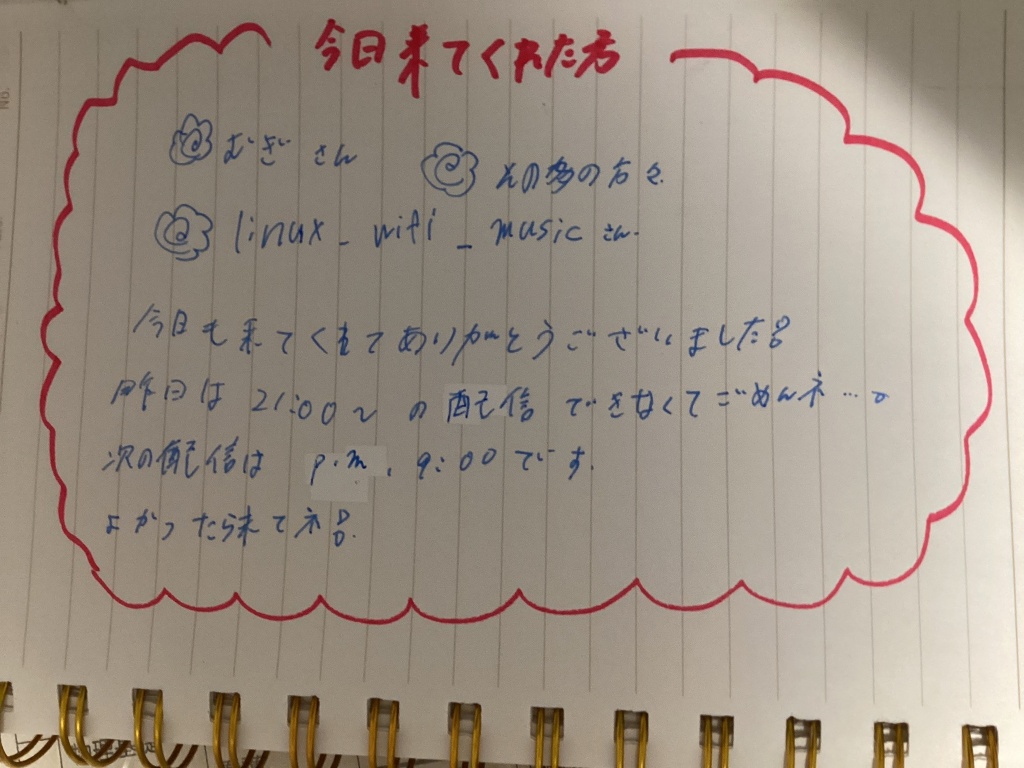 今日来てくれた方
むぎさん
その多の方々
linux_wifi_musicさん
今日も来てくれてありがとうございました!!
昨日は21:00〜の配信できなくてごめんネ…。
次の配信はp.m.9:00です.
よかったら来てネ!!